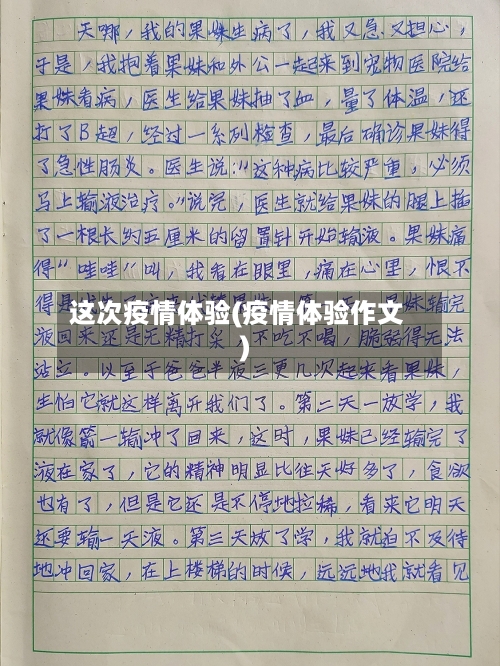 天哪，我的果妹生病了，我又急又担心，
于是，我抱着果妹和外公一起来到宠物医院给
果妹看病，医生给果妹抽了血，量了体温，还
打了B超，经过一系列检查，最后确诊果妹得
了急性肠炎。医生说：“这种病比较严重，必须
马上输液治疗。”说完，医生就给果妹的腿上插
了一根长约五厘米的留置针开始输液。果妹痛
得“哇哇”叫，我看在眼里，痛在心里，恨不
得
妹输完
这次疫情体验(疫情体验作文
)
液回来还是无精打采，不吃不喝，脆弱得无法
站立。以至于爸爸半夜三更几次起来看果妹，
生怕它就这样离开我们了。第二天一放学，我
就像箭一输冲了回来，这时，果妹已经输完了
液在家了，它的精神明显比往天好多了，食欲
也有了，但是它还是不停地拉稀，看来它明天
还要输一天液。第三天放了学，我就迫不及待
地冲回家，在上楼梯的时候，远远地我就看见